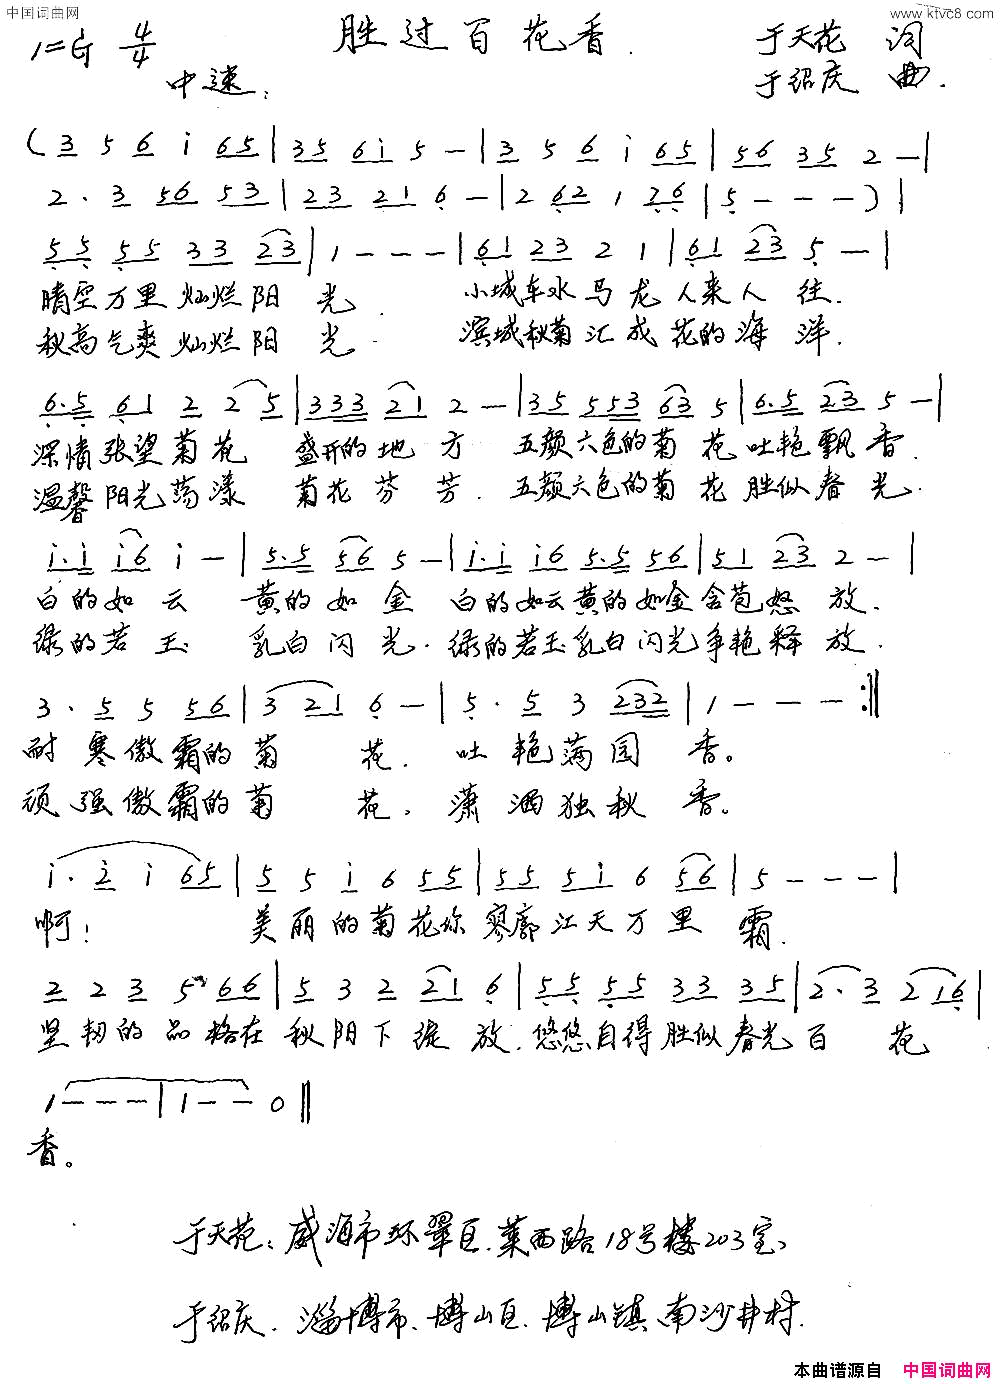 中国词曲网
中国词曲网
www.ktvc8.com
胜过百花香.
1=G 4/4
中速:
于天花 词
于绍庆 曲.
(3 5 6 i 65|35 6i 5 -|3 5 6 i 65|56 35 2 -|
2. 3 56 53|23 21 6 -|2 62 1 76|5 - - -)|
55 55 33 23|1 - - -|61 23 2 1|61 23 5 -|
晴空万里灿烂阳光. 小城车水马龙人来人往.
秋高气爽灿烂阳光. 滨城秋菊汇成花的海洋.
6.5 61 2 2 5|333 21 2 -|35 553 63 5|6.5 23 5 -|
深情张望菊花 盛开的地方 五颜六色的菊花吐艳飘香.
温馨阳光荡漾 菊花芬芳. 五颜六色的菊花胜似春光.
i.i i6 i -|5.5 56 5 -|i.i i6 5.5 56|51 23 2 -|
白的如云 黄的如金 白的如云黄的如金含苞怒放.
绿的若玉 乳白闪光. 绿的若玉乳白闪光争艳释放.
3. 5 5 56|3 21 6 -|5. 5 3 232|1 - - -:‖
耐寒傲霜的菊花. 吐艳满园香。
顽强傲霜的菊花, 潇洒独秋香。
i. 2 i 65|5 5 i 6 55|55 5i 6 56|5 - - -|
啊! 美丽的菊花你寥廓江天万里霜.
2 2 3 5 66|5 3 2 21 6|55 55 33 35|2. 3 2 16|
坚韧的品格在秋阳下绽放. 悠悠自得胜似春光百花
1 - - -|1 - - 0‖
香。
于天花: 威海市环翠区.莱西路18号楼203室、
于绍庆. 淄博市、博山区.博山镇南沙井村.
本曲谱源自 中国词曲网